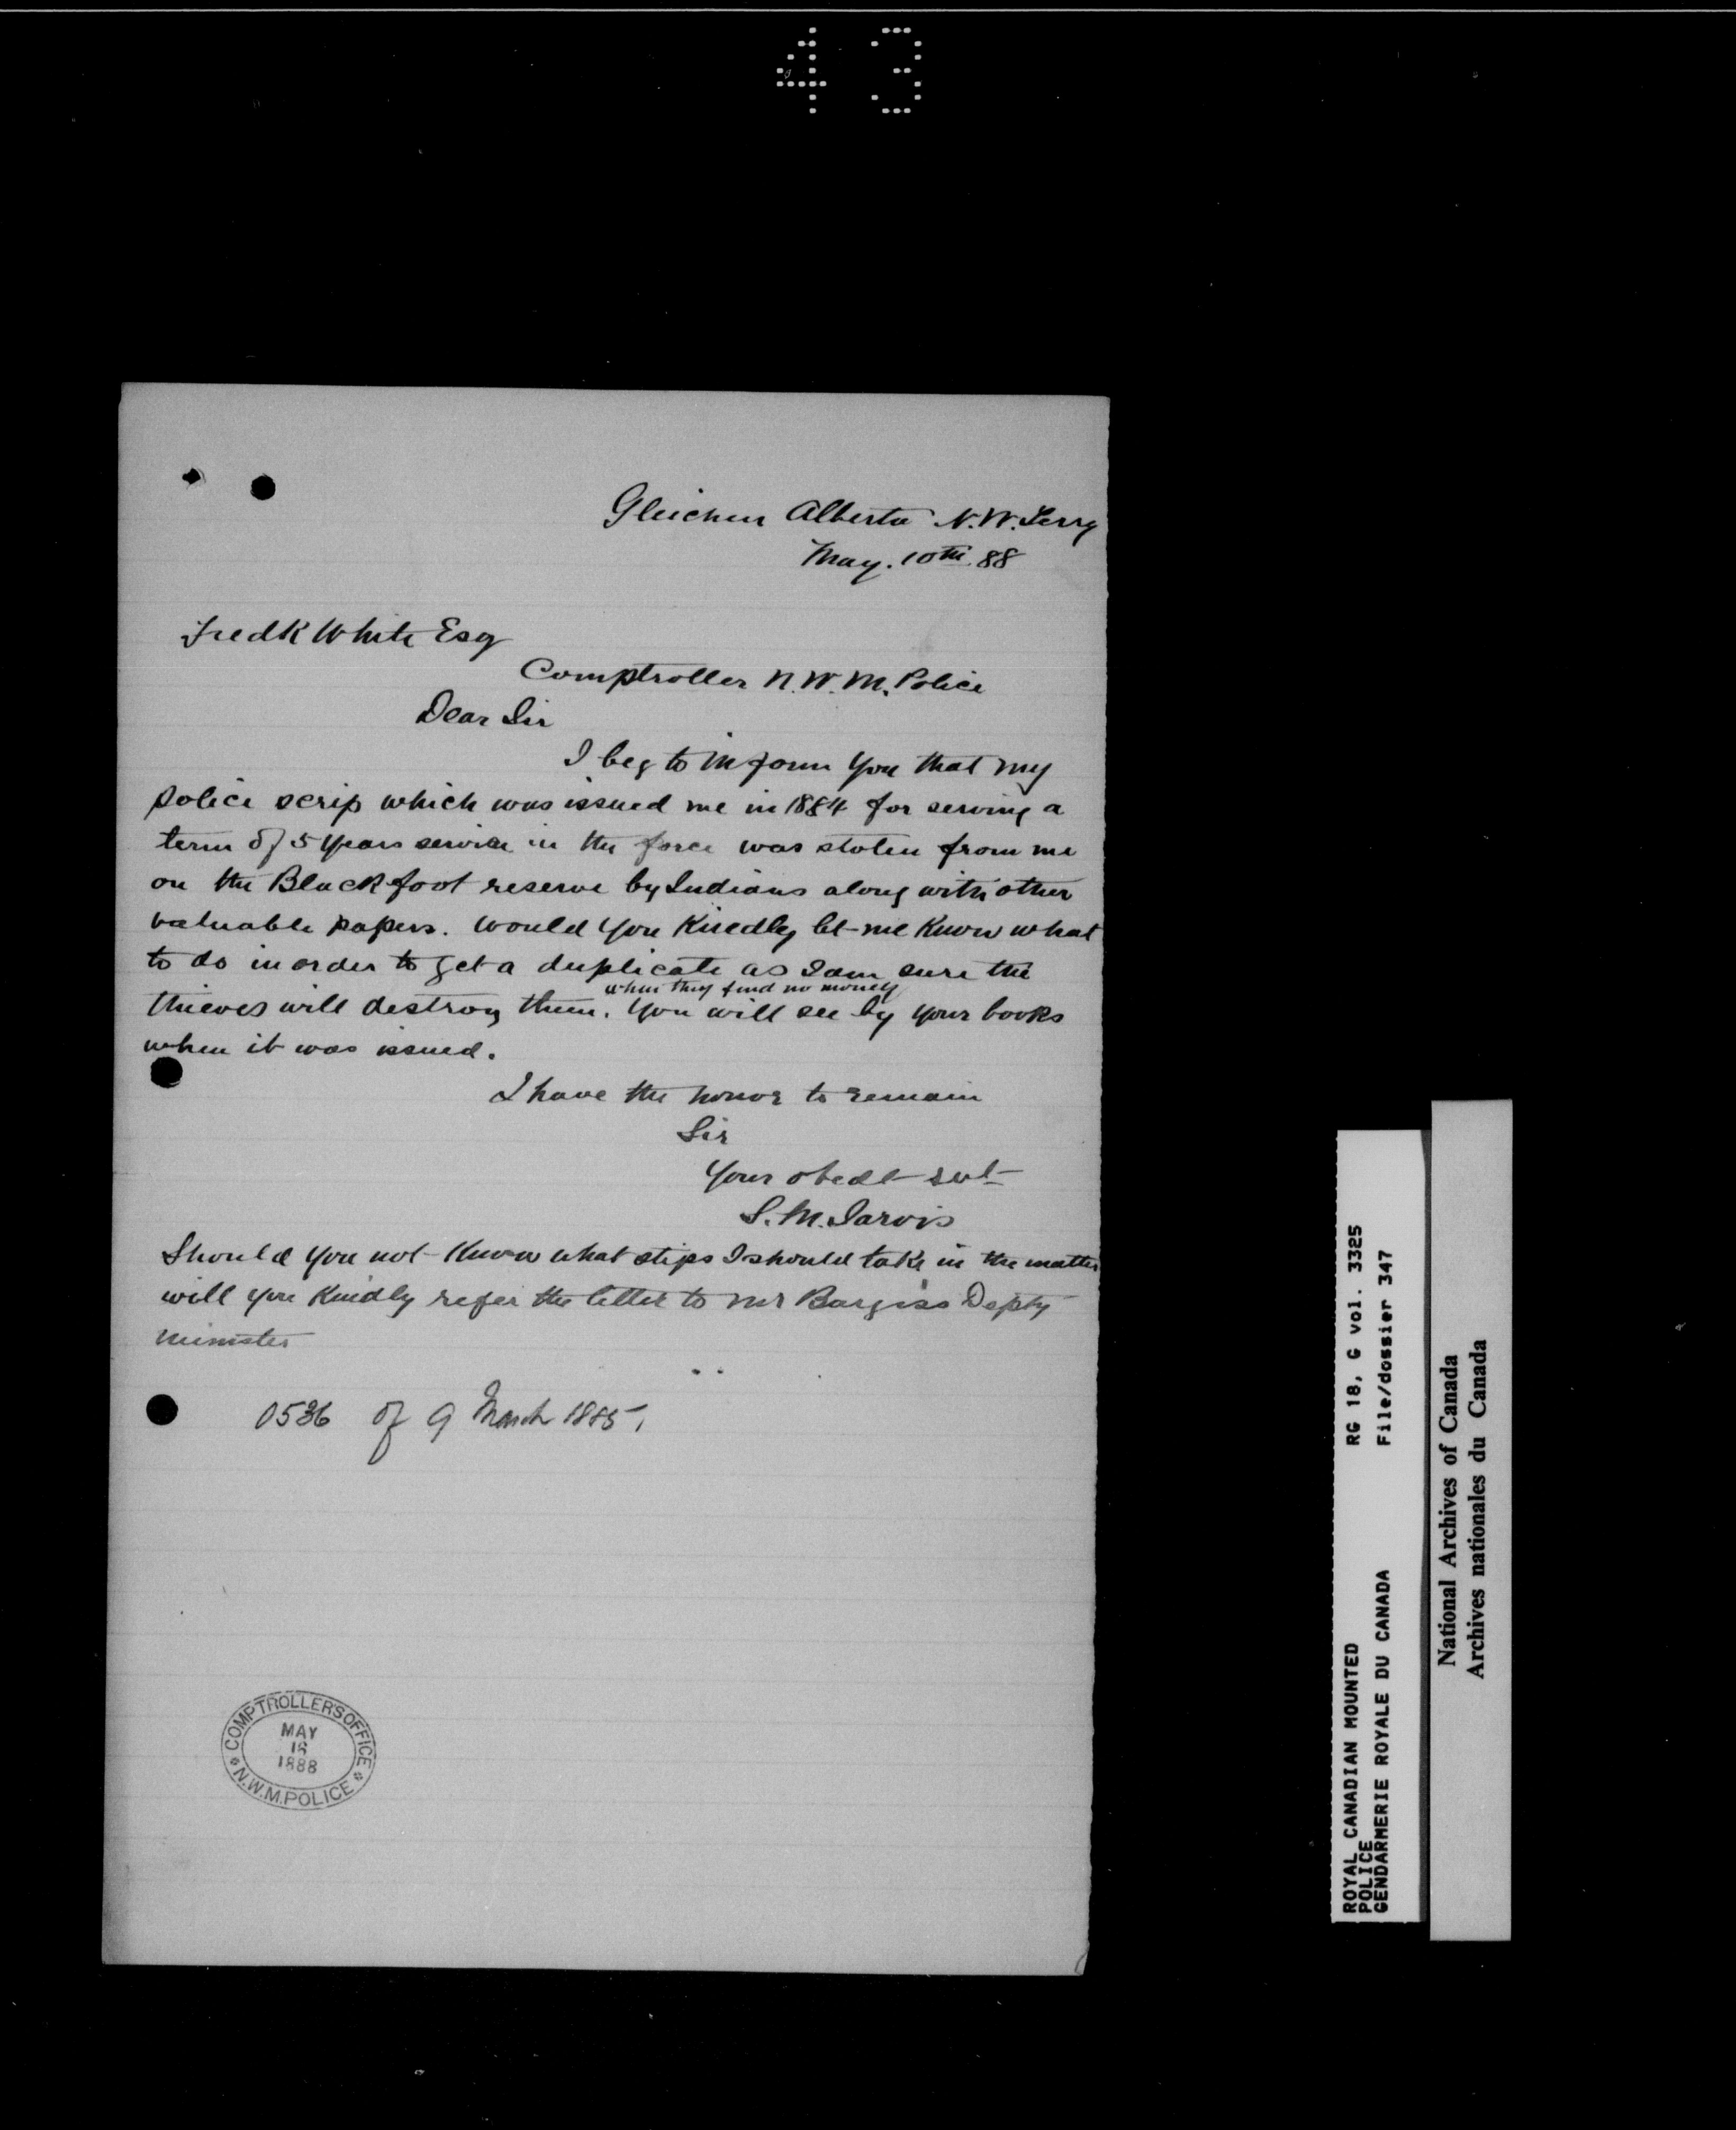 43
Gleichen Alberta N.W. Terry
May. 10th. 88
Fredk White Esq
Comptroller N.W.M. Police
Dear Sir
I beg to inform you that my
police scrip which was issued me in 1884 for serving a
term of 5 years service in the force was stolen from me
on the Blackfoot reserve by Indians along with other
valuable papers. Would you Kindly let me Know what
to do in order to get a duplicate as I am sure the
when they find no money
thieves will destroy them. You will see by your books
when it was issued.
I have the honor to remain
Sir
Your obedt svt
S. M. Jarvis
Should you not Know what steps I should take in the matter
will you Kindly refer the letter to Mr Burgiss Depty
minister
0536 of 9 March 1885.
COMPTROLLER'S OFFICE
MAY
16
1888
N.W.M. POLICE
ROYAL CANADIAN MOUNTED RG 18, G vol. 3325
POLICE
GENDARMERIE ROYALE DU CANADA File/dossier 347
National Archives of Canada
Archives nationales du Canada